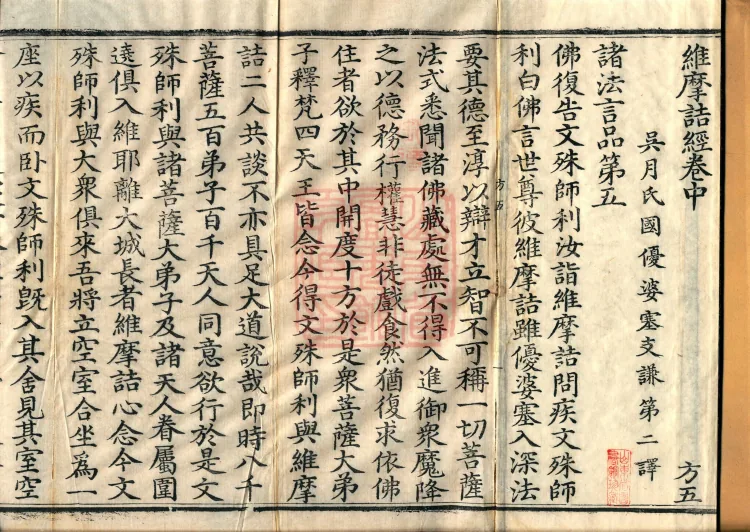 維摩詰經卷中
方五
吳月氏國優婆塞支謙第二譯
諸法言品第五
佛復告文殊師利汝詣維摩詰問疾文殊師
利白佛言世尊彼維摩詰雖優婆塞入深法
方五
要其德至淳以辯才立智不可稱一切菩薩
法式悉聞諸佛藏處無不得入進御衆魔降
之以德務行權慧非徒戲食然猶復求依佛
住者欲於其中開度十方於是衆菩薩大弟
子釋梵四天王皆念今得文殊師利與維摩
詰二人共談不亦具足大道說哉即時八千
菩薩五百弟子百千天人同意欲行於是文
殊師利與諸菩薩大弟子及諸天人眷屬圍
遶俱入維耶離大城長者維摩詰心念今文
殊師利與大衆俱來吾將立空室合坐爲一
座以疾而臥文殊師利旣入其舍見其室空